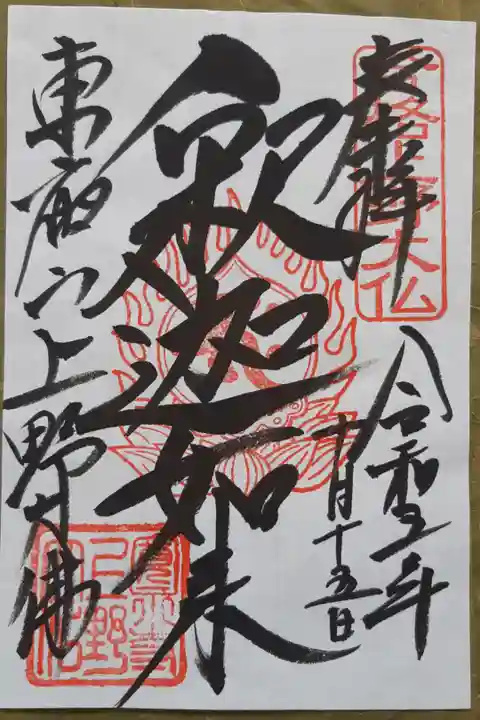 奉拝
令和年
十月十五日
釈迦如来
東叡山上野大佛
大仏
上野